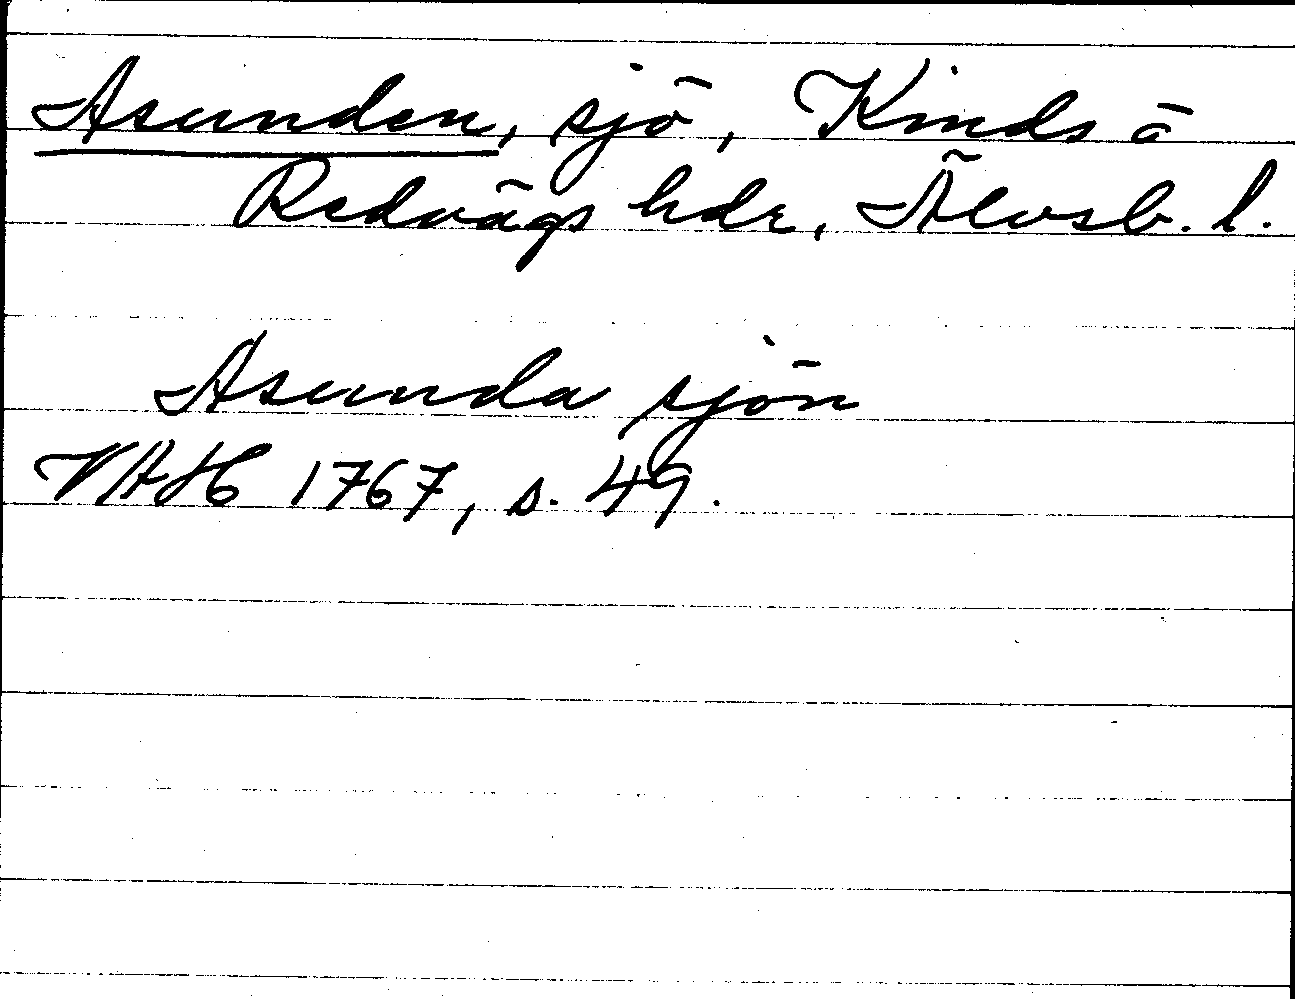 Asunden, sjö, Kinds o
Redvägs hdr, Älvsb. l.
Asunda sjön
VAH 1767, s. 49.